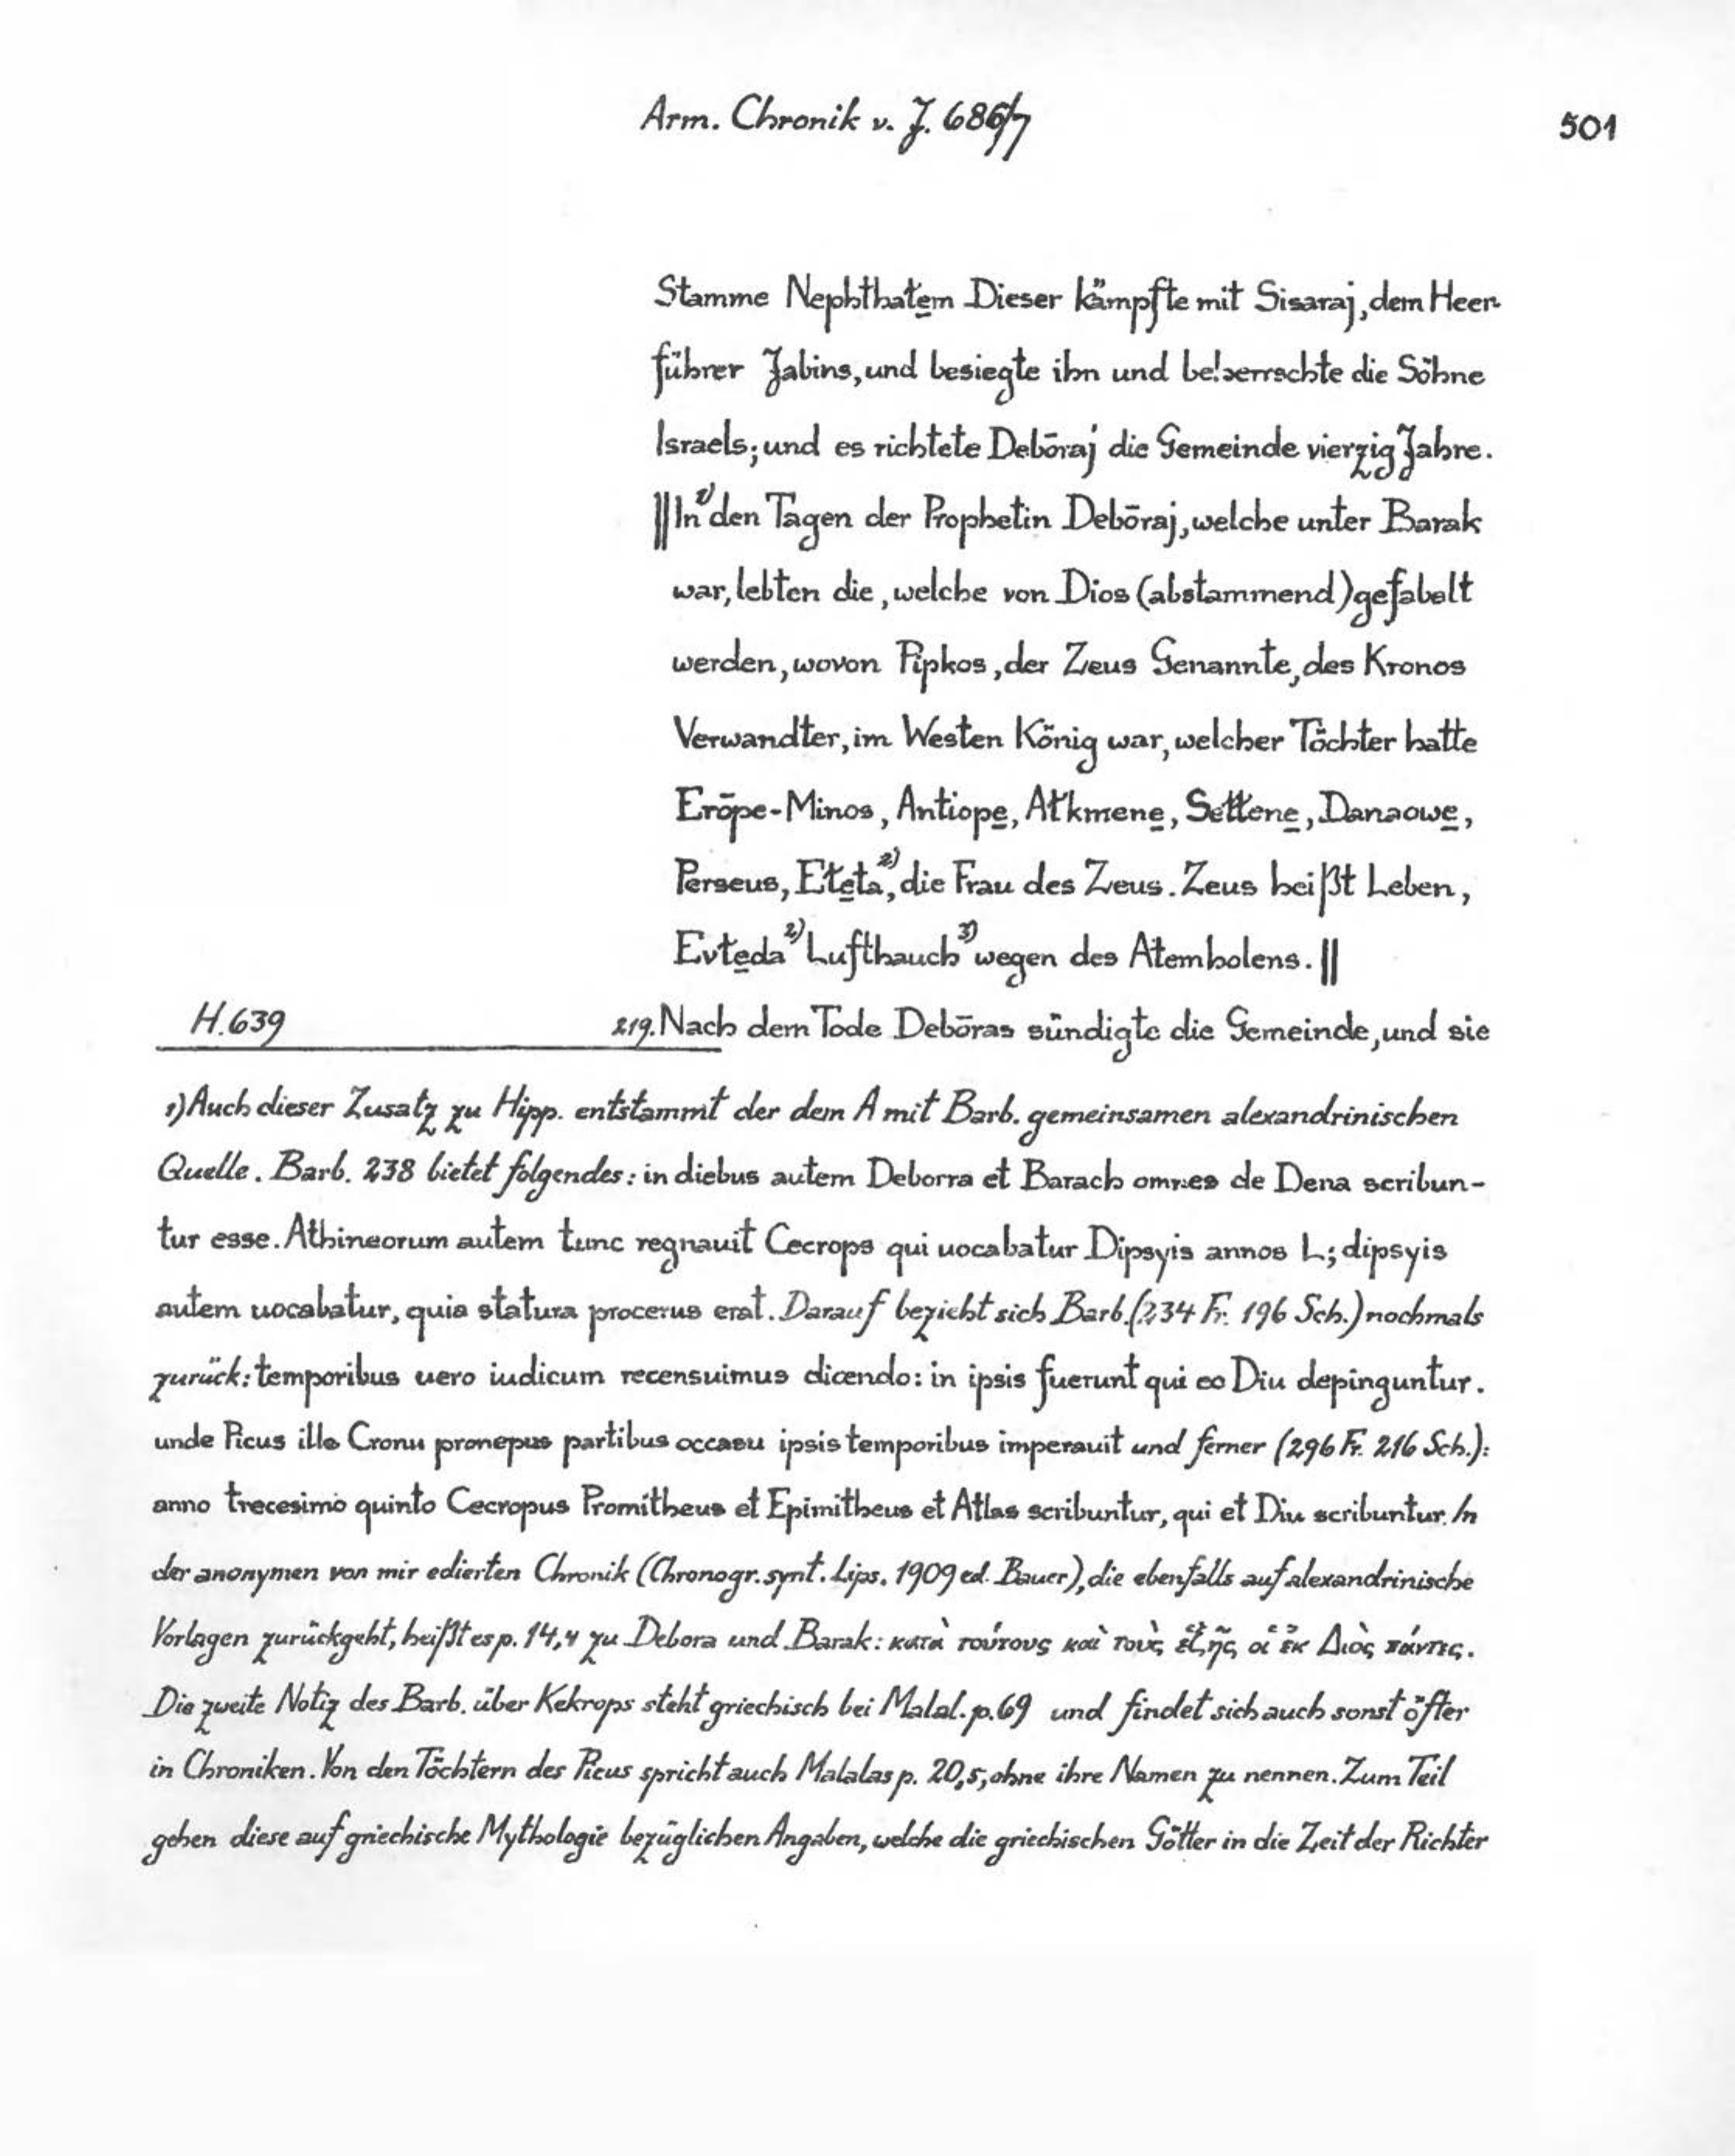 Arm. Chronik v. J. 686/7
501
Stamme Nephthałem Dieser kämpfte mit Sisaraj, dem Heer-
führer Jabins, und besiegte ihn und beherrschte die Söhne
Israels; und es richtete Debōraj die Gemeinde vierzig Jahre.
‖ In¹⁾ den Tagen der Prophetin Debōraj, welche unter Barak
war, lebten die, welche von Dios (abstammend) gefabelt
werden, wovon Pipkos, der Zeus Genannte, des Kronos
Verwandter, im Westen König war, welcher Töchter hatte
Erōpe-Minos, Antiope̱, Ałkmene̱, Sełłene̱, Danaowe̱,
Perseus, Ełe̱ta²⁾, die Frau des Zeus. Zeus heißt Leben,
Evłe̱da²⁾ Lufthauch³⁾ wegen des Atemholens. ‖
H. 639
219. Nach dem Tode Debōras sündigte die Gemeinde, und sie
1) Auch dieser Zusatz zu Hipp. entstammt der dem A mit Barb. gemeinsamen alexandrinischen
Quelle. Barb. 238 bietet folgendes: in diebus autem Deborra et Barach omnes de Dena scribun-
tur esse. Athineorum autem tunc regnauit Cecrops qui uocabatur Dipsyis annos L; dipsyis
autem uocabatur, quia statura procerus erat. Darauf bezieht sich Barb. (234 Fr. 196 Sch.) nochmals
zurück: temporibus uero iudicum recensuimus dicendo: in ipsis fuerunt qui eo Diu depinguntur.
unde Picus ille Cronu pronepus partibus occasu ipsis temporibus imperauit und ferner (296 Fr. 216 Sch.):
anno trecesimo quinto Cecropus Promitheus et Epimitheus et Atlas scribuntur, qui et Diu scribuntur. In
der anonymen von mir edierten Chronik (Chronogr. synt. Lips. 1909 ed. Bauer), die ebenfalls auf alexandrinische
Vorlagen zurückgeht, heißt es p. 14,4 zu Debora und Barak: κατὰ τούτους καὶ τοὺς ἑξῆς οἱ ἐκ Διὸς πάντες.
Die zweite Notiz des Barb. über Kekrops steht griechisch bei Malal. p. 69 und findet sich auch sonst öfter
in Chroniken. Von den Töchtern des Picus spricht auch Malalas p. 20,5, ohne ihre Namen zu nennen. Zum Teil
gehen diese auf griechische Mythologie bezüglichen Angaben, welche die griechischen Götter in die Zeit der Richter